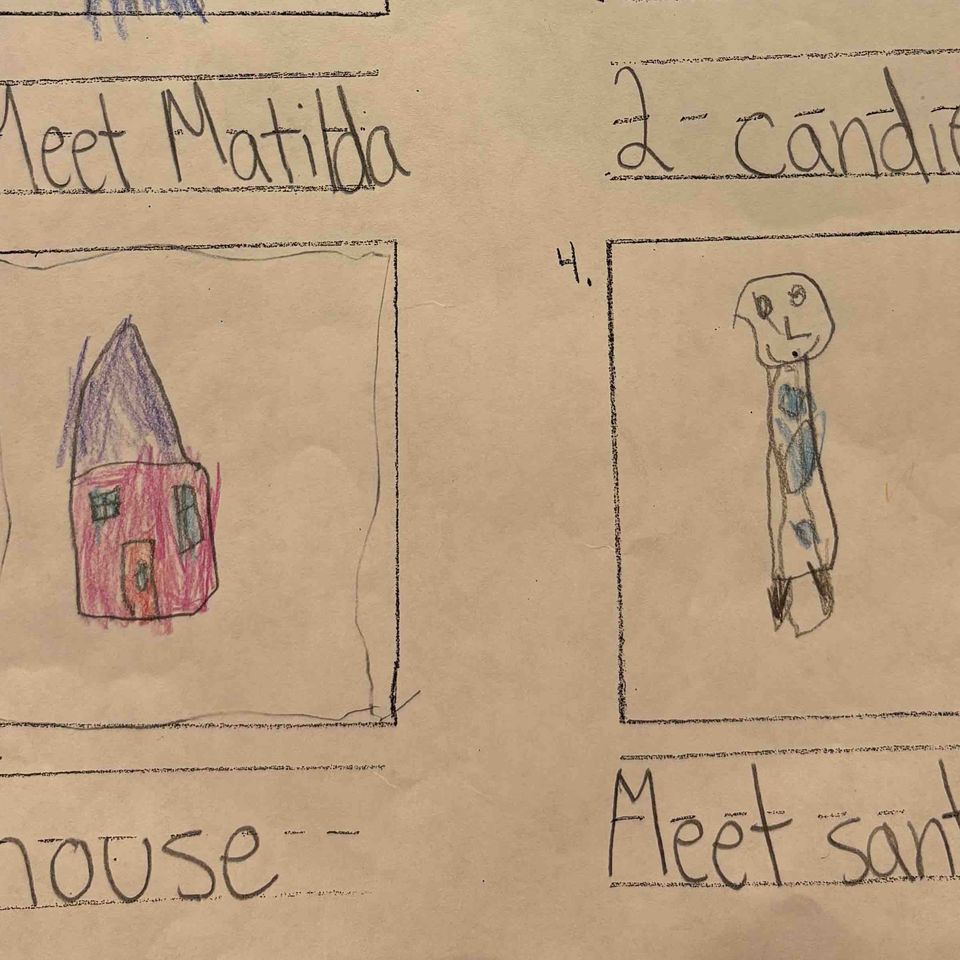 Meet Matilda
2 candie
4.
house
Meet sant